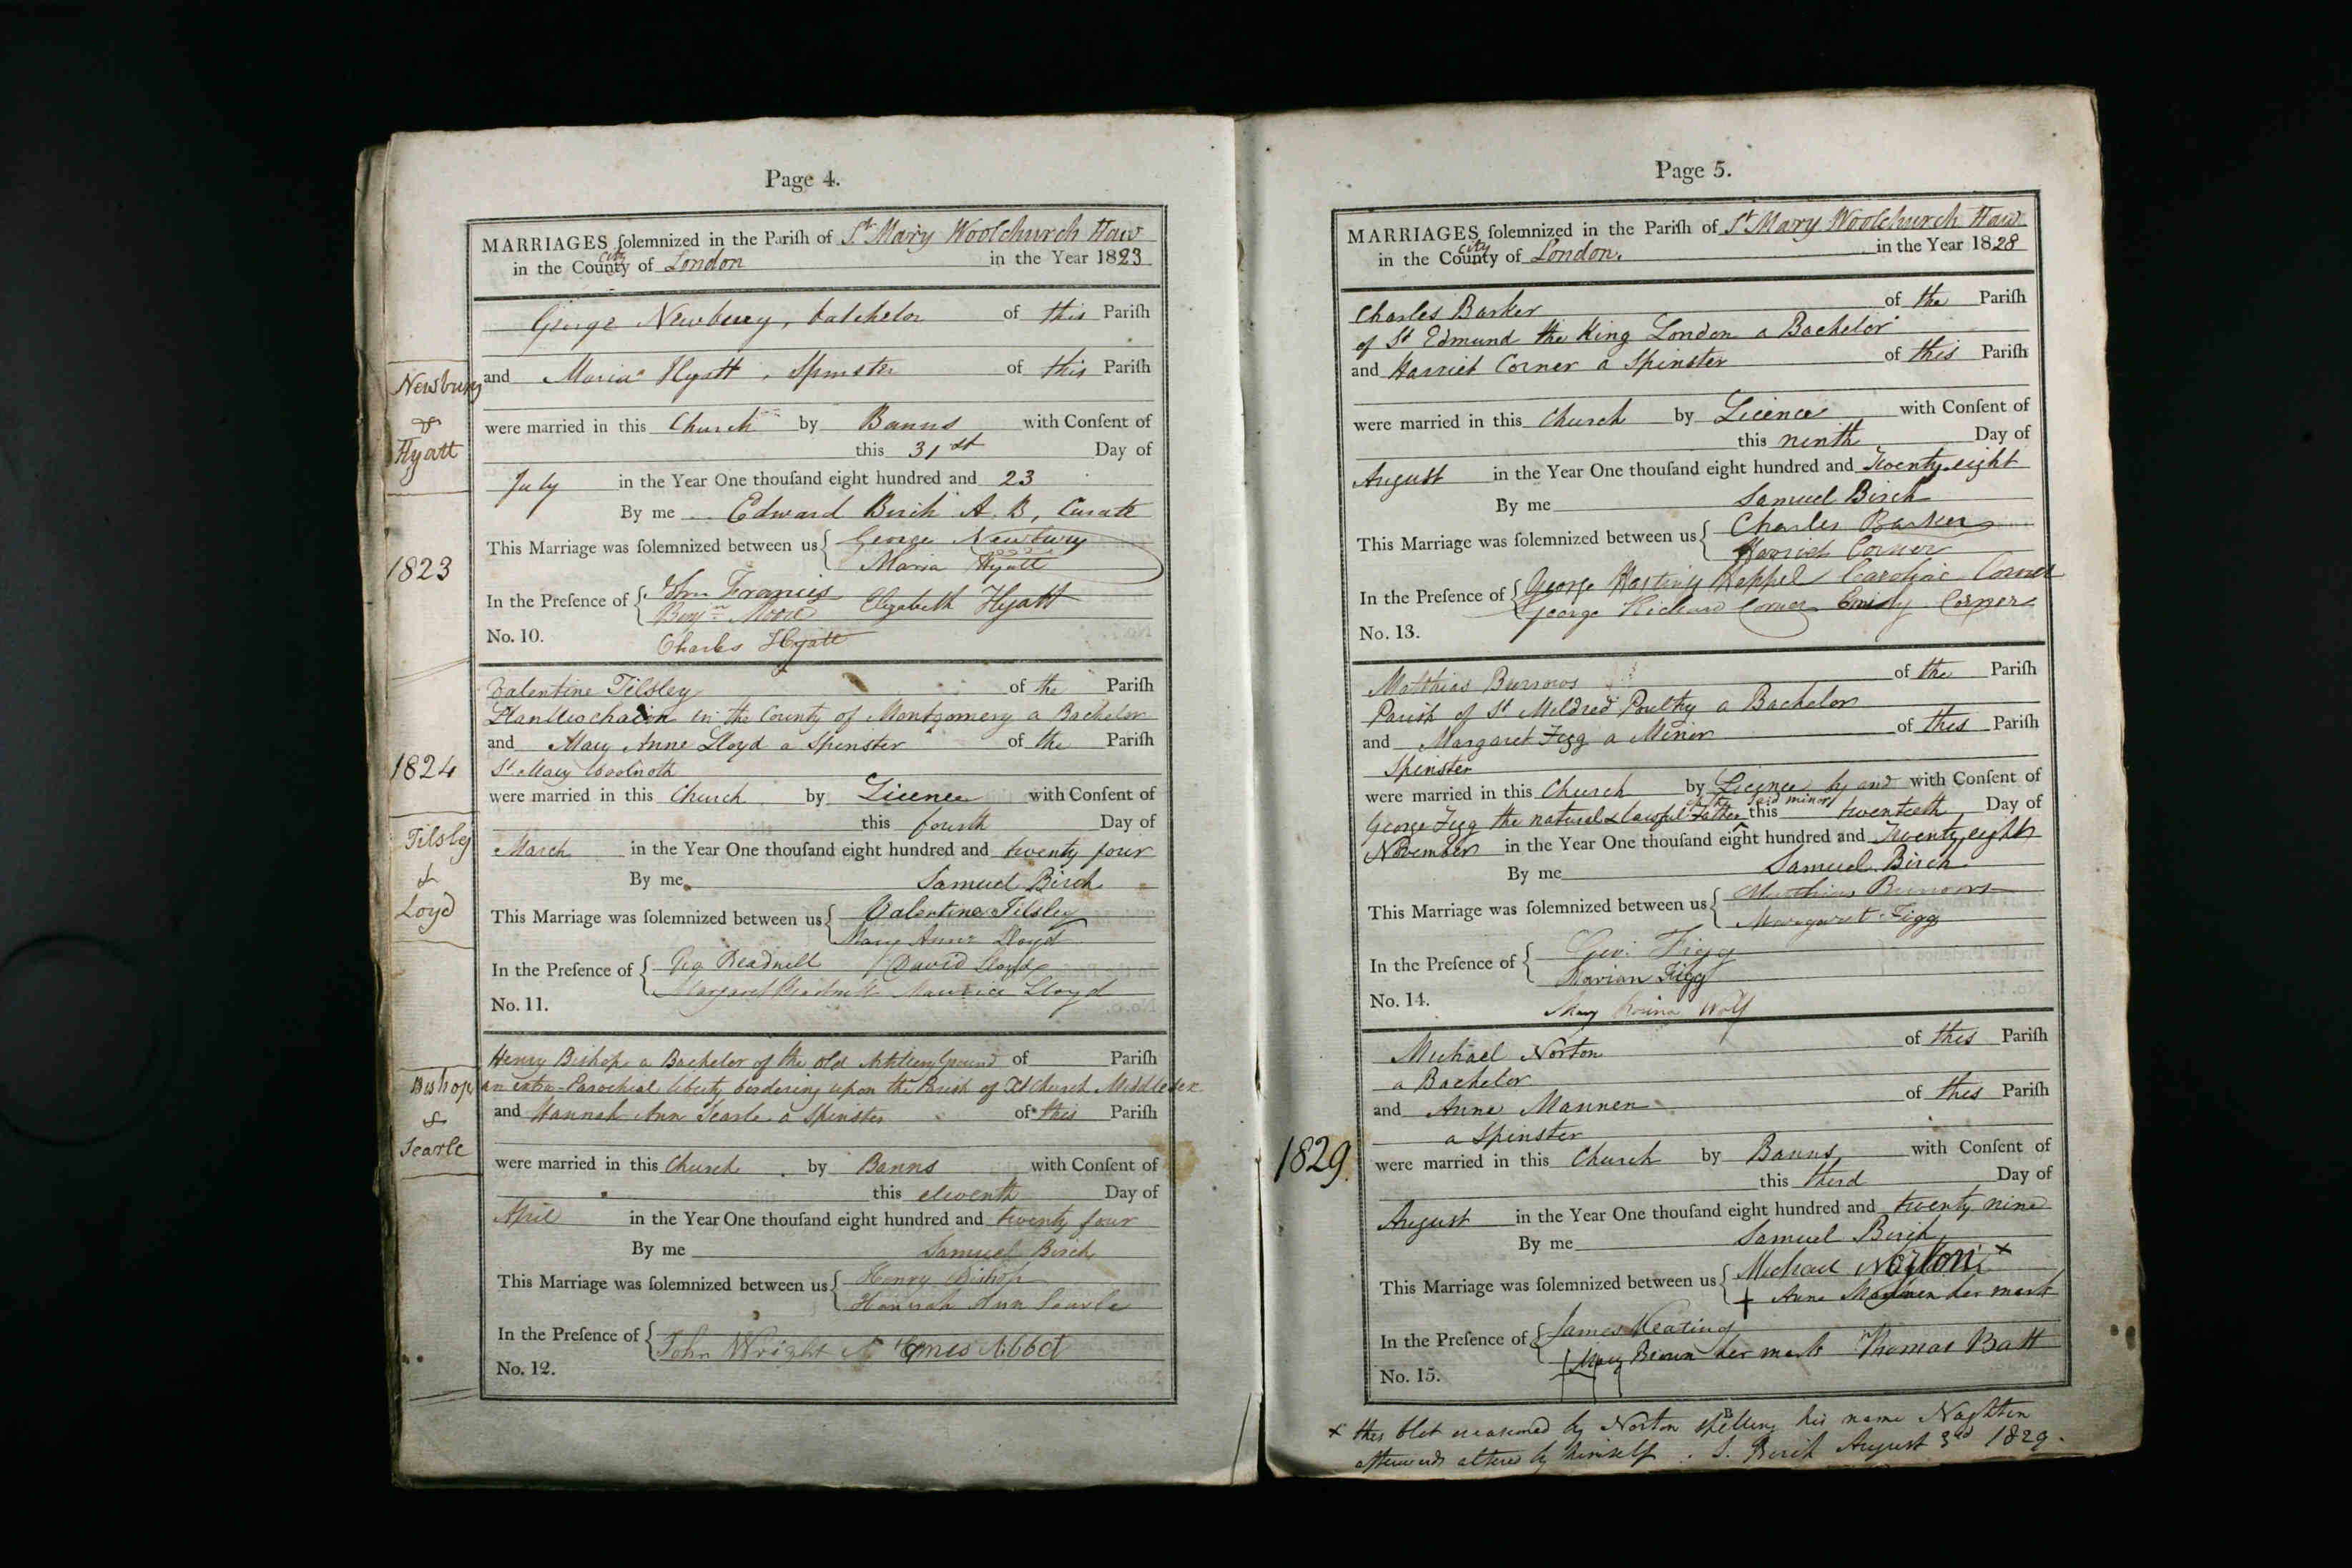 Page 4.
MARRIAGES solemnized in the Parish of St Mary Woolchurch Haw
in the County City of London in the Year 1823
George Newbury, batchelor of this Parish
and Maria Hyatt, Spinster of this Parish
were married in this Church by Banns with Consent of
this 31st Day of
July in the Year One thousand eight hundred and 23
By me Edward Birch A.B, Curate
This Marriage was solemnized between us { George Newbury
Maria Hyatt
In the Presence of { John Francis
Benjn Moore Elizabeth Hyatt
No. 10. Charles Hyatt
Newbury
&
Hyatt
1823
Valentine Tilsley of the Parish
Llanllwchaion in the County of Montgomery a Bachelor
and Mary Anne Lloyd a Spinster of the Parish
St Mary Woolnoth
were married in this Church by Licence with Consent of
this fourth Day of
March in the Year One thousand eight hundred and twenty four
By me Samuel Birch
This Marriage was solemnized between us { Valentine Tilsley
Mary Anne Lloyd
In the Presence of { Geo Beadnell David Lloyd
Margaret Beadnell Maurice Lloyd
No. 11.
1824
Tilsley
&
Loyd
Henry Bishop a Bachelor of the Old Artillery Ground of Parish
an extra-Parochial liberty bordering upon the Parish of Xt Church Middlesex
and Hannah Ann Searle a Spinster of this Parish
were married in this Church by Banns with Consent of
this eleventh Day of
April in the Year One thousand eight hundred and twenty four
By me Samuel Birch
This Marriage was solemnized between us { Henry Bishop
Hannah Ann Searle
In the Presence of { John Wright Abbot
No. 12.
Bishop
&
Searle
Page 5.
MARRIAGES solemnized in the Parish of St Mary Woolchurch Haw
in the County City of London. in the Year 1828
Charles Barker of the Parish
of St Edmund the King London a Bachelor
and Harriet Corner a Spinster of this Parish
were married in this Church by Licence with Consent of
this ninth Day of
August in the Year One thousand eight hundred and Twenty eight
By me Samuel Birch
This Marriage was solemnized between us { Charles Barker
Harriet Corner
In the Presence of { George Hastings Heppel Caroline Corner
George Richard Corner Emily Corner
No. 13.
Matthias Burrows of the Parish
Parish of St Mildred Poultry a Bachelor
and Margaret Figg a Minor of this Parish
Spinster
were married in this Church by Licence by and with Consent of
George Figg the natural & lawful Father of the said minor this twentieth Day of
November in the Year One thousand eight hundred and Twenty eight
By me Samuel Birch
This Marriage was solemnized between us { Matthias Burrows
Margaret Figg
In the Presence of { Geo: Figg
Marian Figg
No. 14. Mary Wolf
Michael Norton of this Parish
a Bachelor
and Anne Mannen of this Parish
a Spinster
were married in this Church by Banns with Consent of
this third Day of
August in the Year One thousand eight hundred and twenty nine
By me Samuel Birch
This Marriage was solemnized between us { Michael Norton x
+ Anne Mannen her mark
In the Presence of { James Keating
+ Mary Brown her mark Thomas Batt
No. 15.
1829.
x this blot occasioned by Norton spelling his name Naghten
afterwards altered by himself. S. Birch August 3rd 1829.